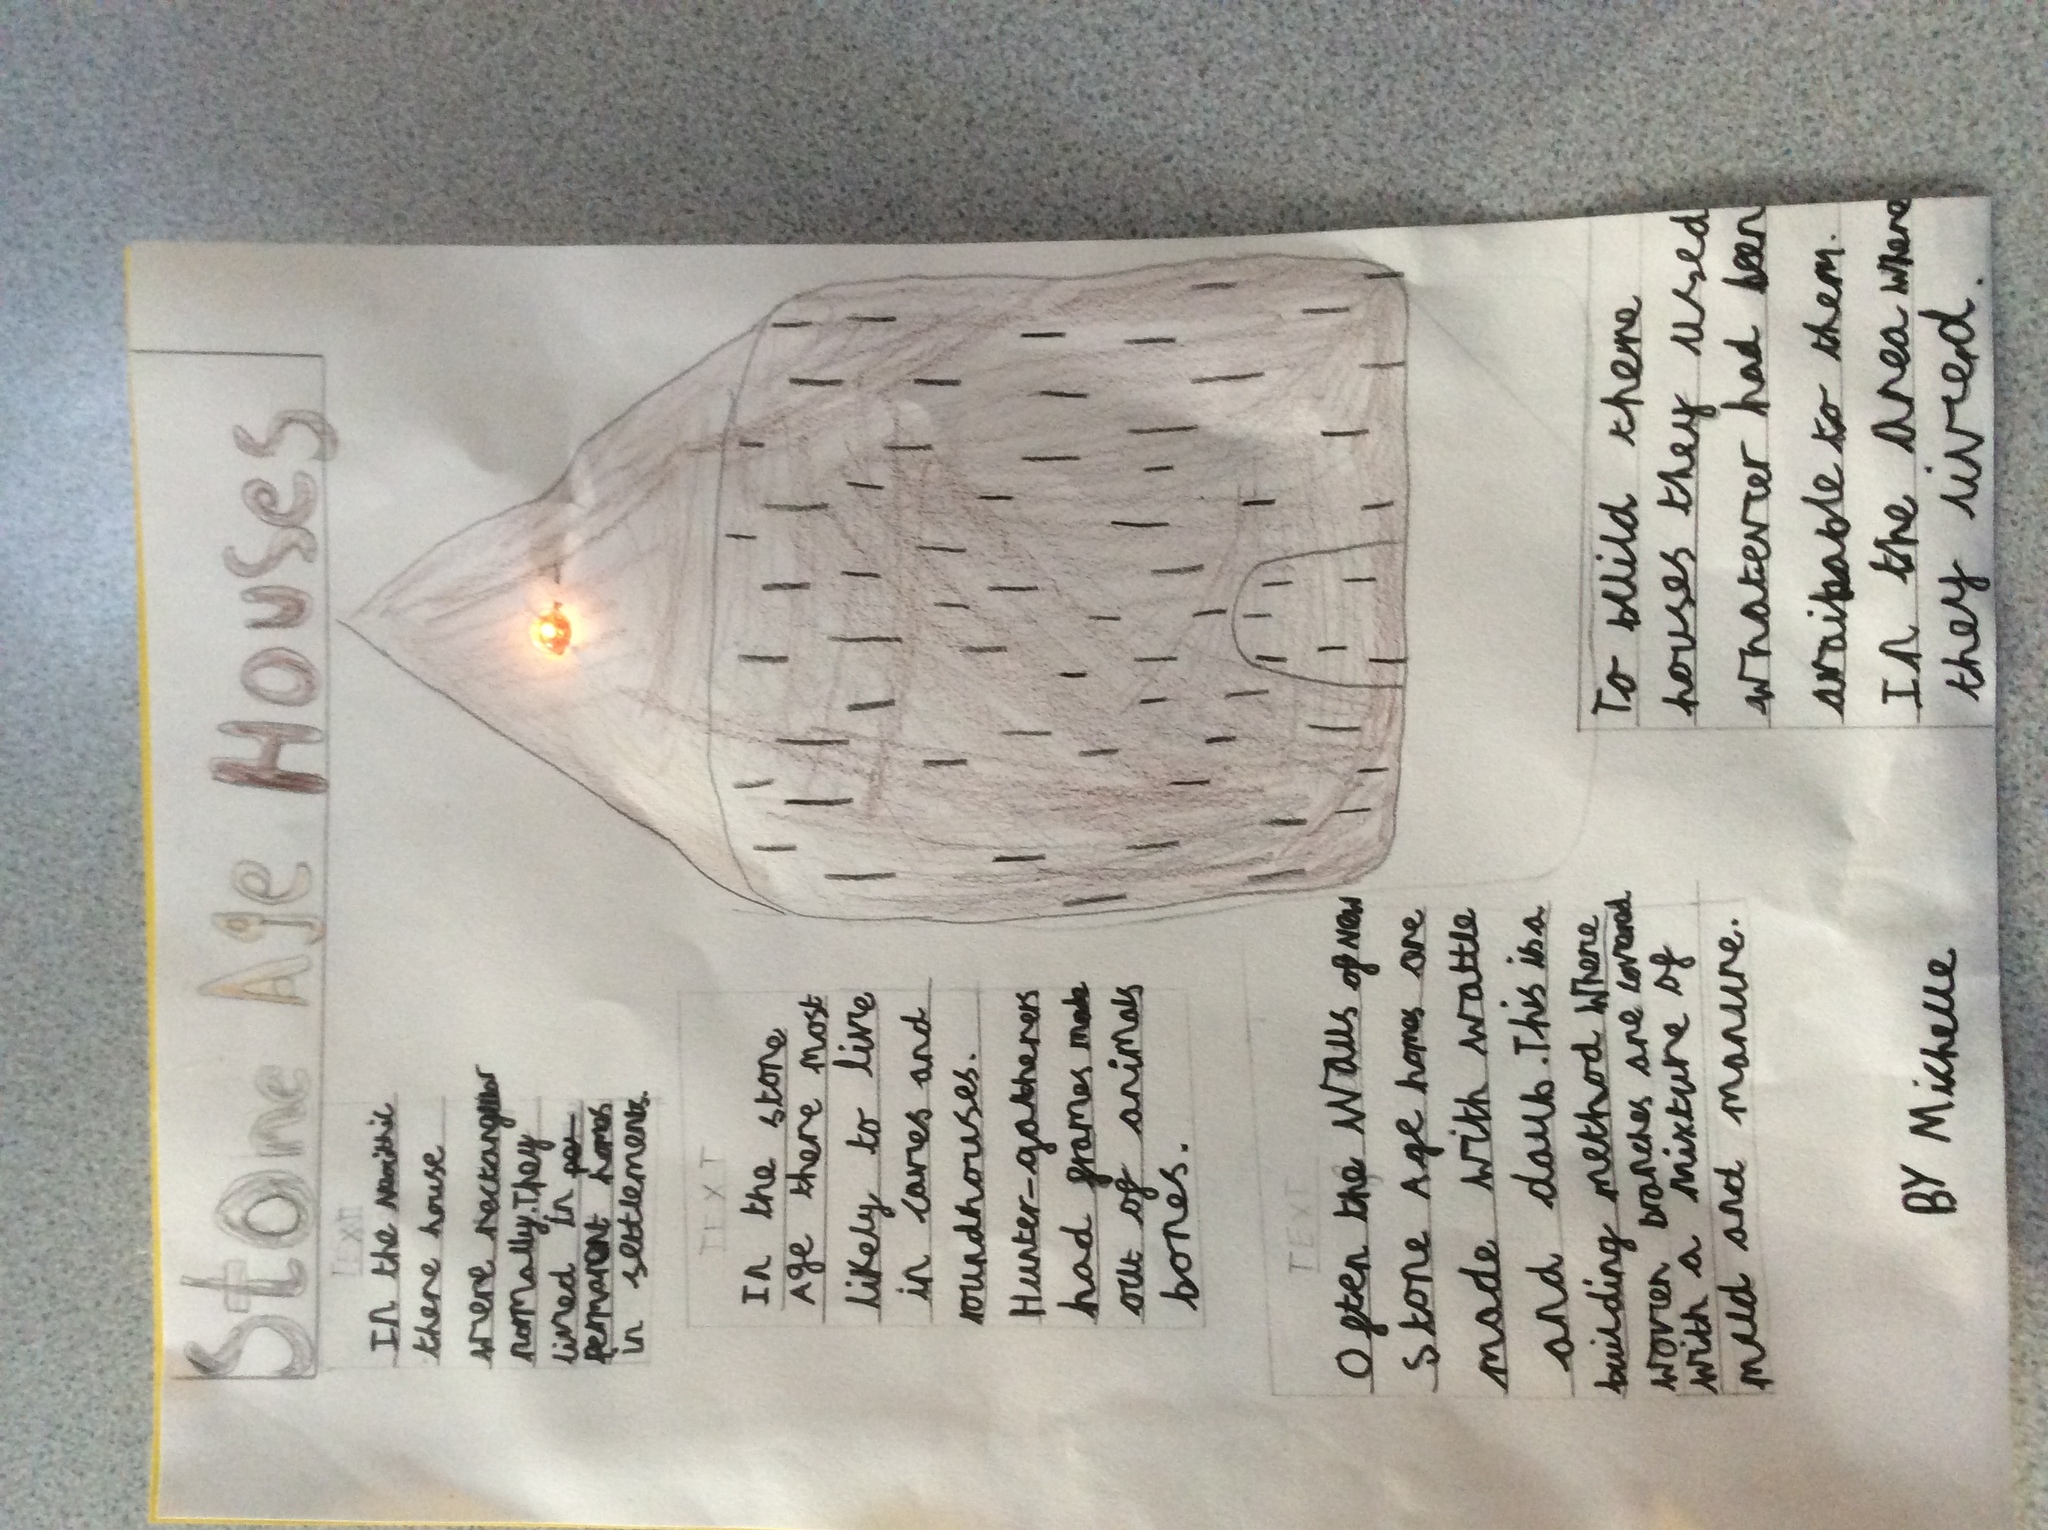 Stone Age Houses
TEXT
In the Neolithic
there house
were rectangular
normally. They
lived in per-
permanent homes
in settlements.
TEXT
In the stone
Age there most
likely to live
in caves and
roundhouses.
Hunter-gatherers
had frames made
out of animals
bones.
TEXT
Often the walls of New
Stone Age homes are
made with wattle
and daub. This is a
building method where
woven branches are covered
with a mixture of
mud and manure.
To build there
houses they used
whatever had been
available to them.
In the area where
they lived.
BY Michelle